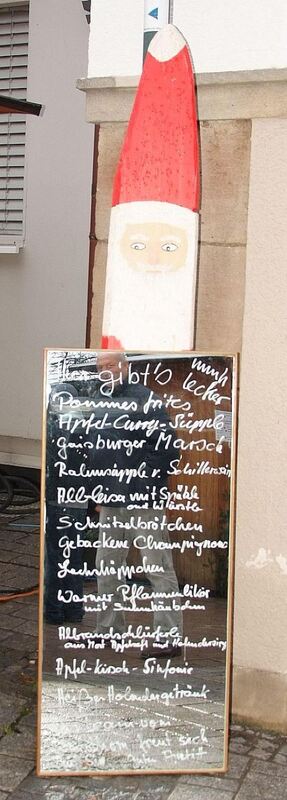 gibt's mmh lecker
Pommes frites
Apfel-Curry-Süpple
Gaisburger Marsch
Rahmsüpple v.
Albleisa mit Spätzle
und Würstle
Schnitzelbrötchen
Gebackene Champignons
Lachshäppchen
Warmer Pflaumenlikör
mit Sahnehäubchen
Albrandschlürferle
aus Most Apfelsaft und
Apfel-Kirsch-Sinfonie
Heißer Holundergetränk
freut sich